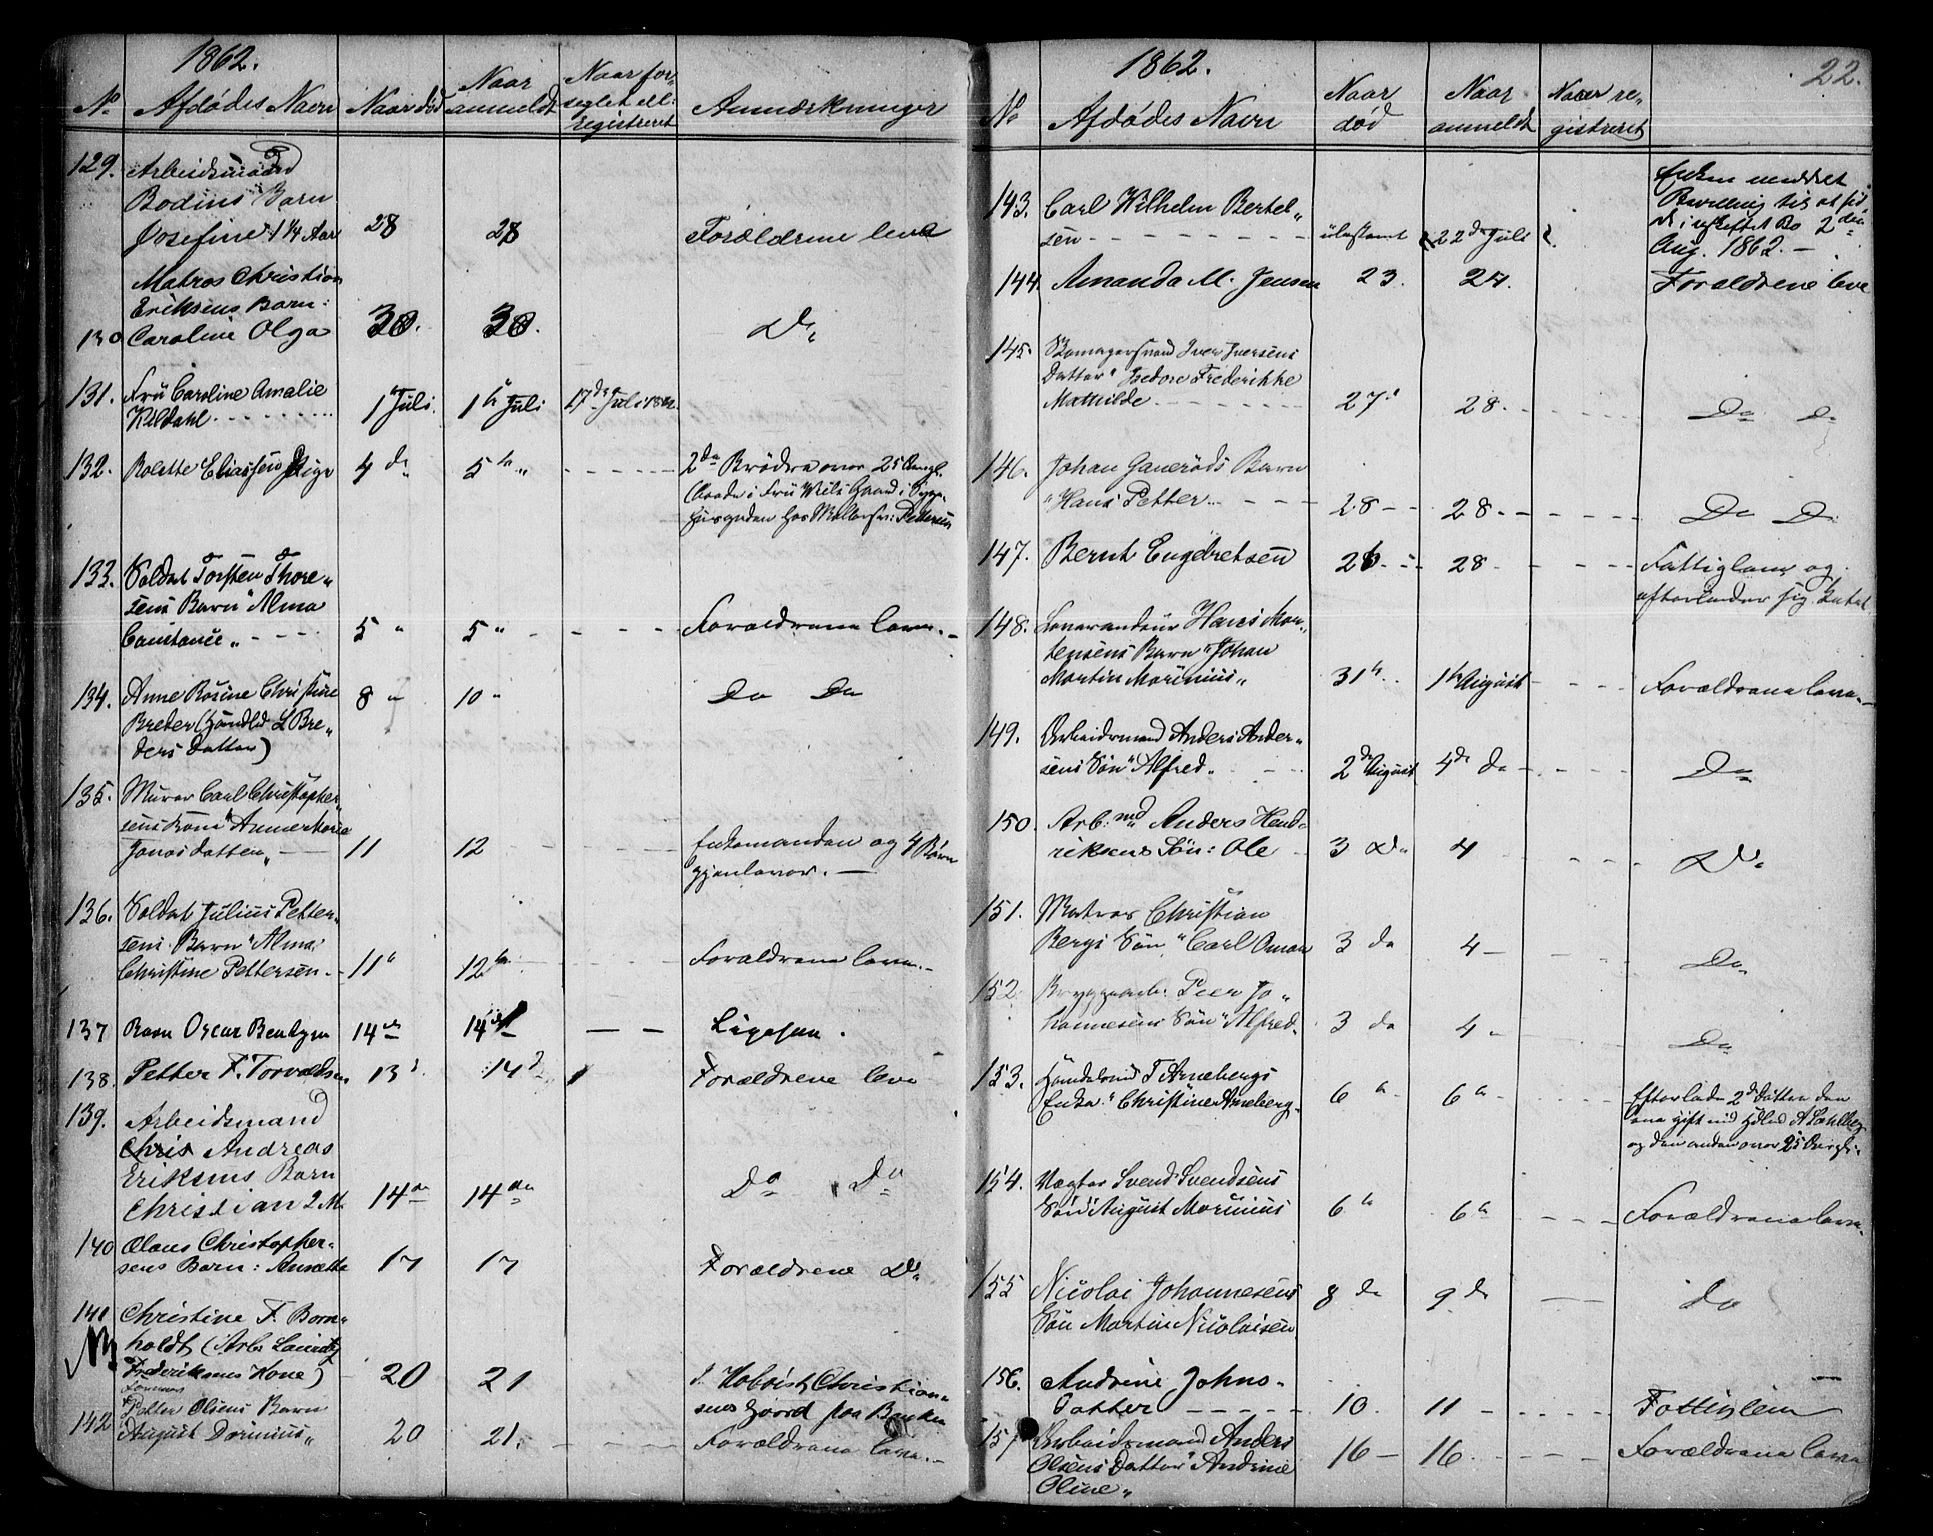 1862.
No Afdødes Navn Naar død Naar anmeldt Naar forseglet ell: registreret Anmærkninger
129. Arbeidsmand
Bodins Barn
Josefine 1 1/4 Aar 28 28 Forældrene leve
Matros Christian
Eriksens Barn:
130 Caroline Olga 30. 30. Do
131. Fru Caroline Amalie
Kildahl 1 Juli. 1 Juli 17de Juli 1862.
132. Rolette Eliassen Pige 4 do 5 " 2de Brødre over 25 Aar
i Fru Gaard i
hos Pettersen
133. Soldat Torsten Thore„
sens Barn "Alma
Constance„ 5 " 5 " Forældrene leve.
134. Anne Rosine Christine
Breder (Handlsd L. Bre„
ders Datter) 8 " 10 " Do Do
135. Murer Carl Christopher„
sens Kone "Anne Marie
Jonasdatter„ 11 12 Enkemanden og 4 Børn
gjenlever.
136. Soldat Julius Petter„
sens Barn "Alma
Christine Pettersen 11 12 Forældrene leve.
137 Barn Oscar Bentzen 14de 14de Ligesaa.
138. Petter F. Torvaldsen 13 14 Forældrene leve
139. Arbeidsmand
Chris Andreas
Eriksens Barn
Christian 2 M. 14de 14de Do Do
140 Olaus Christopher-
sens Barn: Annette 17 17 Forældrene Do
141 Christine F. Born-
holdt (Arb. Lauritz
Frederiksens Kone) 20 21 I Hoboist Christian-
sens Gaard paa Banken
Former
142 Petter Olsens Barn
August Dorinius„ 20 21. Forældrene leve.
1862. 22.
No Afdødes Navn Naar død Naar anmeldt Naar registreret
143. Carl Wilhelm Bertel„
sen ubestemt 22de Juli Enken meddelt
Bevilling til at sid-
de i uskiftet Bo 2den
Aug. 1862.
144. Amanda M. Jensen 23. 24. Forældrene leve
145. Skomagersvend Iver Iversens
Datter "Isedore Frederikke
Mathilde 27 28. Do Do
146. Johan Ganerøds Barn
"Hans Petter 28 28. Do Do
147. Bernt Engebretsen 26 28 Fattiglem og
efterlader sig Intet
148. Hans Mor„
tensens Barn "Johan
Martin Morinius„ 31 1 August Forældrene leve.
149. Arbeidsmand Anders Ander„
sens Søn "Alfred„ 2de August 4de do Do
150. Arb:md Anders Hend-
riksens Søn: Ole 3 Do 4 Do
151. Matros Christian
Bergs Søn "Carl Oman 3 do 4 Do
152. Bryggearb: Peer Jo„
hannesens Søn "Alfred 3 do 4 Do
153. Handelsmd T. Arnebergs
Enke "Christine Arneberg. 6 6 Efterlader 2de Døttre den
ene gift med Hdlsd A
og den anden over 25 Aar
154. Vægter Svend Svendsens
Søn "August Morinius 6 6 Forældrene leve.
155 Nicolai Johannesens
Søn Martin Nicolaisen 8 do 9 do do
156. Andrine Johns-
Datter 10. 11 Fattiglem
157 Arbeidsmand Anders
Olsens Datter "Andrine
Oline„ 16 16. Forældrene leve